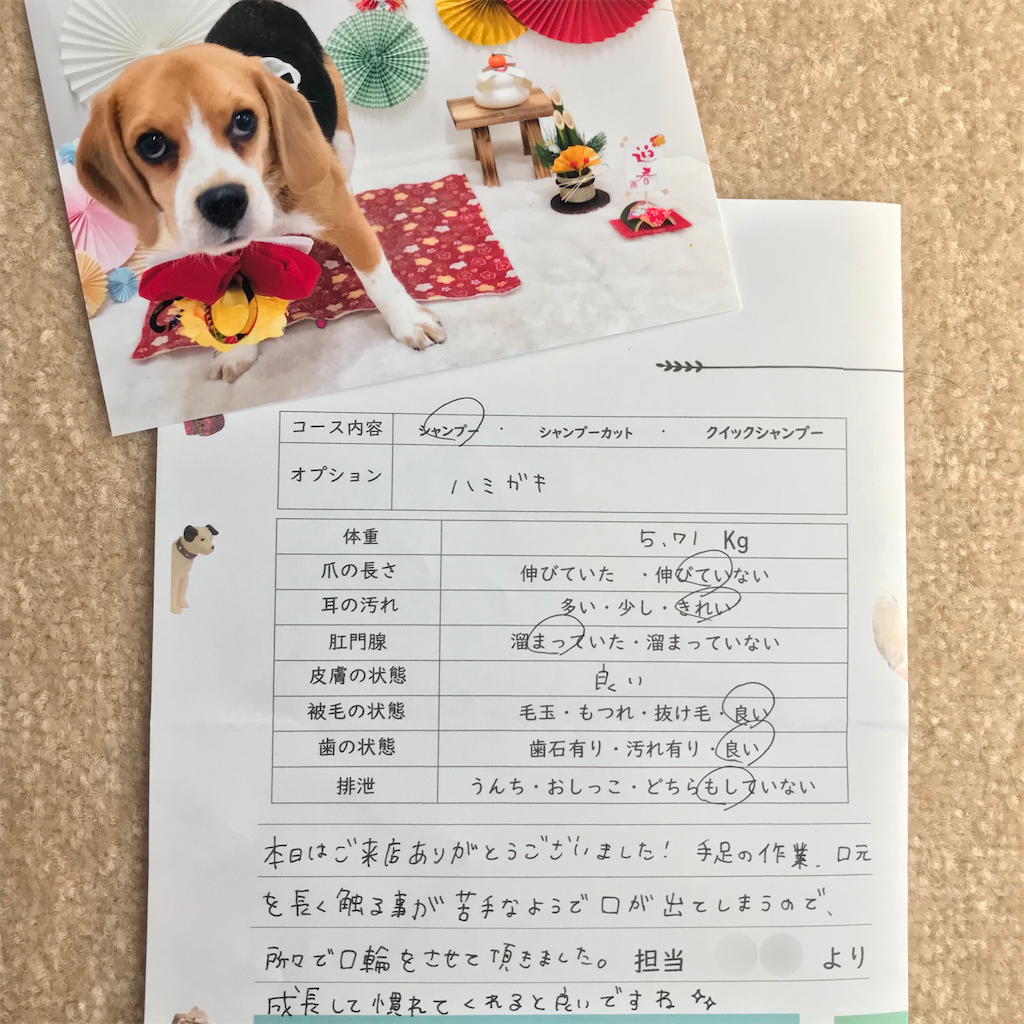 迎春
コース内容 シャンプー ・ シャンプーカット ・ クイックシャンプー
オプション ハミガキ
体重 5.71 Kg
爪の長さ 伸びていた ・伸びていない
耳の汚れ 多い・少し・きれい
肛門腺 溜まっていた・溜まっていない
皮膚の状態 良い
被毛の状態 毛玉・もつれ・抜け毛・良い
歯の状態 歯石有り・汚れ有り・良い
排泄 うんち・おしっこ・どちらもしていない
本日はご来店ありがとうございました! 手足の作業、口元
を長く触る事が苦手なようで口が出てしまうので、
所々で口輪をさせて頂きました。 担当 より
成長して慣れてくれると良いですね